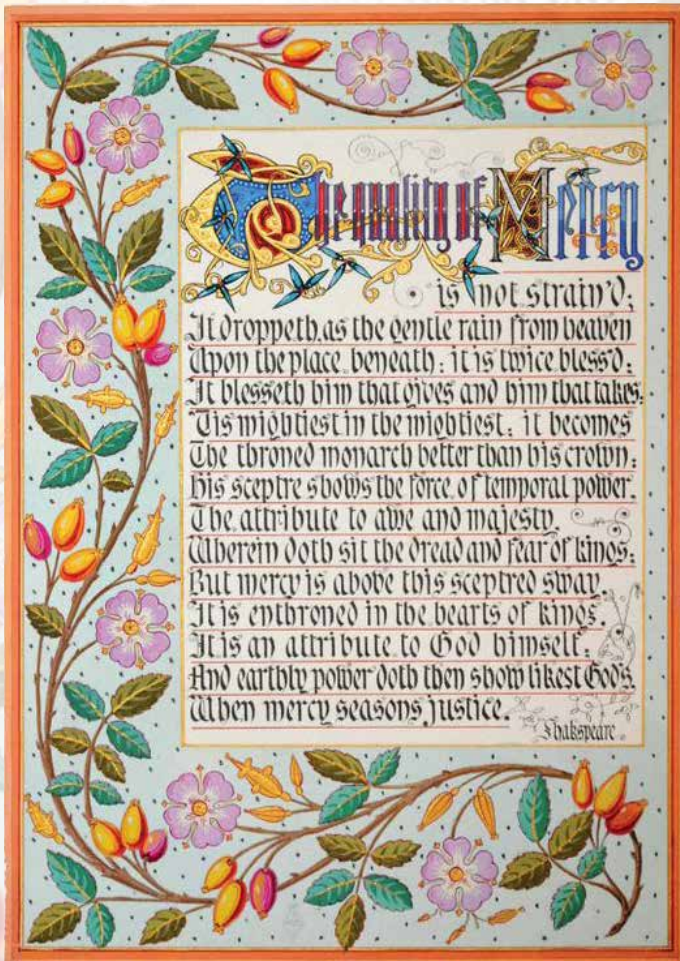 The quality of Mercy
is not strain'd;
It droppeth, as the gentle rain from heaven
Upon the place beneath; it is twice bless'd;
It blesseth him that gives and him that takes:
'Tis mightiest in the mightiest; it becomes
The throned monarch better than his crown;
His sceptre shows the force of temporal power,
The attribute to awe and majesty,
Wherein doth sit the dread and fear of kings;
But mercy is above this sceptred sway,
It is enthroned in the hearts of kings,
It is an attribute to God himself;
And earthly power doth then show likest God's,
When mercy seasons justice.
Shakspeare